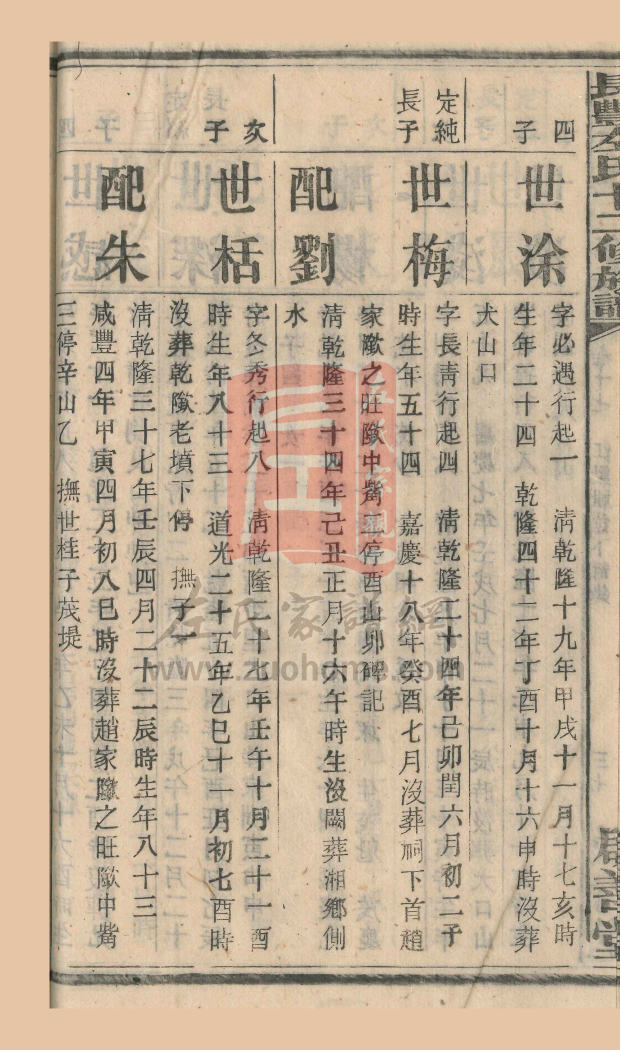 長豐左氏十二修族譜
四子
世涂
字必遇行起一　清乾隆十九年甲戌十一月十七亥時
生年二十四　乾隆四十二年丁酉十月十六申時沒葬
大山口
定純長子
世梅
字長青行起四　清乾隆二十四年己卯閏六月初二子
時生年五十四　嘉慶十八年癸酉七月沒葬祠下首趙
家隴之旺隴中嘴　停酉山卯碑記
配劉
清乾隆三十四年己丑正月十六午時生沒闕葬湘鄉側
水
次子
世栝
字冬秀行起八　清乾隆二十七年壬午十月二十一酉
時生年八十三　道光二十五年乙巳十一月初七酉時
沒葬乾隴老墳下停　撫子一
配朱
清乾隆三十七年壬辰四月二十二辰時生年八十三
咸豐四年甲寅四月初八巳時沒葬趙家隴之旺隴中嘴
三停辛山乙　撫世桂子茂堤
善堂
左氏家譜網
www.zuohome.com